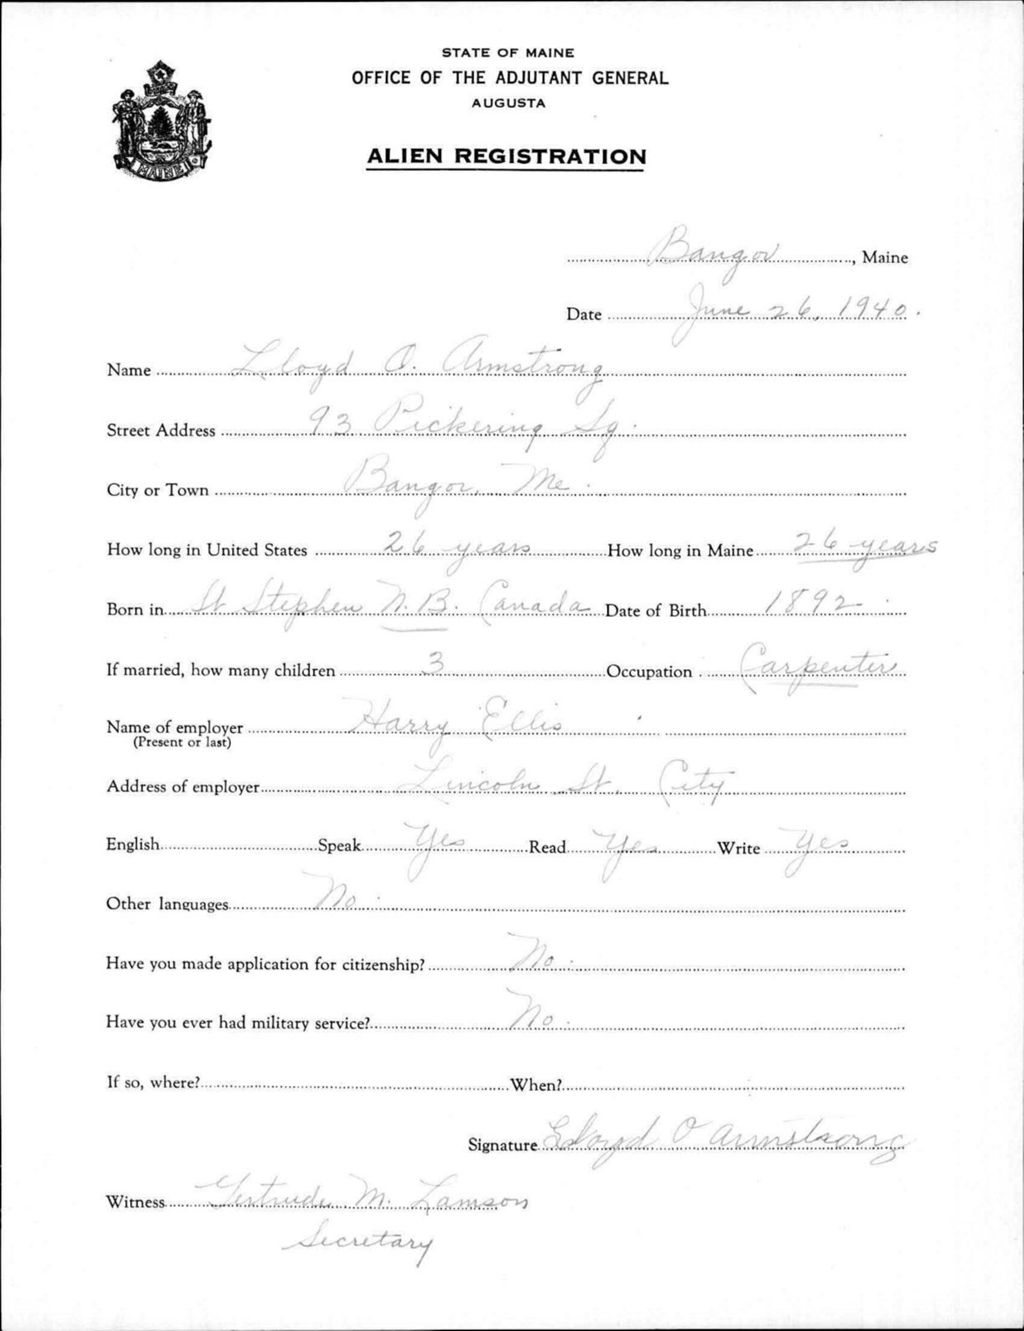 STATE OF MAINE
OFFICE OF THE ADJUTANT GENERAL
AUGUSTA
ALIEN REGISTRATION
MAINE
Bangor, Maine
Date June 26, 1940.
Name Lloyd O. Armstrong
Street Address 93 Pickering Sq.
City or Town Bangor, Me.
How long in United States 26 years How long in Maine 26 years
Born in St Stephen N.B. Canada Date of Birth 1892
If married, how many children 3 Occupation Carpenter
Name of employer Harry Ellis
(Present or last)
Address of employer Lincoln St. City
English Speak Yes Read Yes Write Yes
Other languages No.
Have you made application for citizenship? No.
Have you ever had military service? No.
If so, where? When?
Signature Lloyd O Armstrong
Witness Gertrude M. Lamson
Secretary